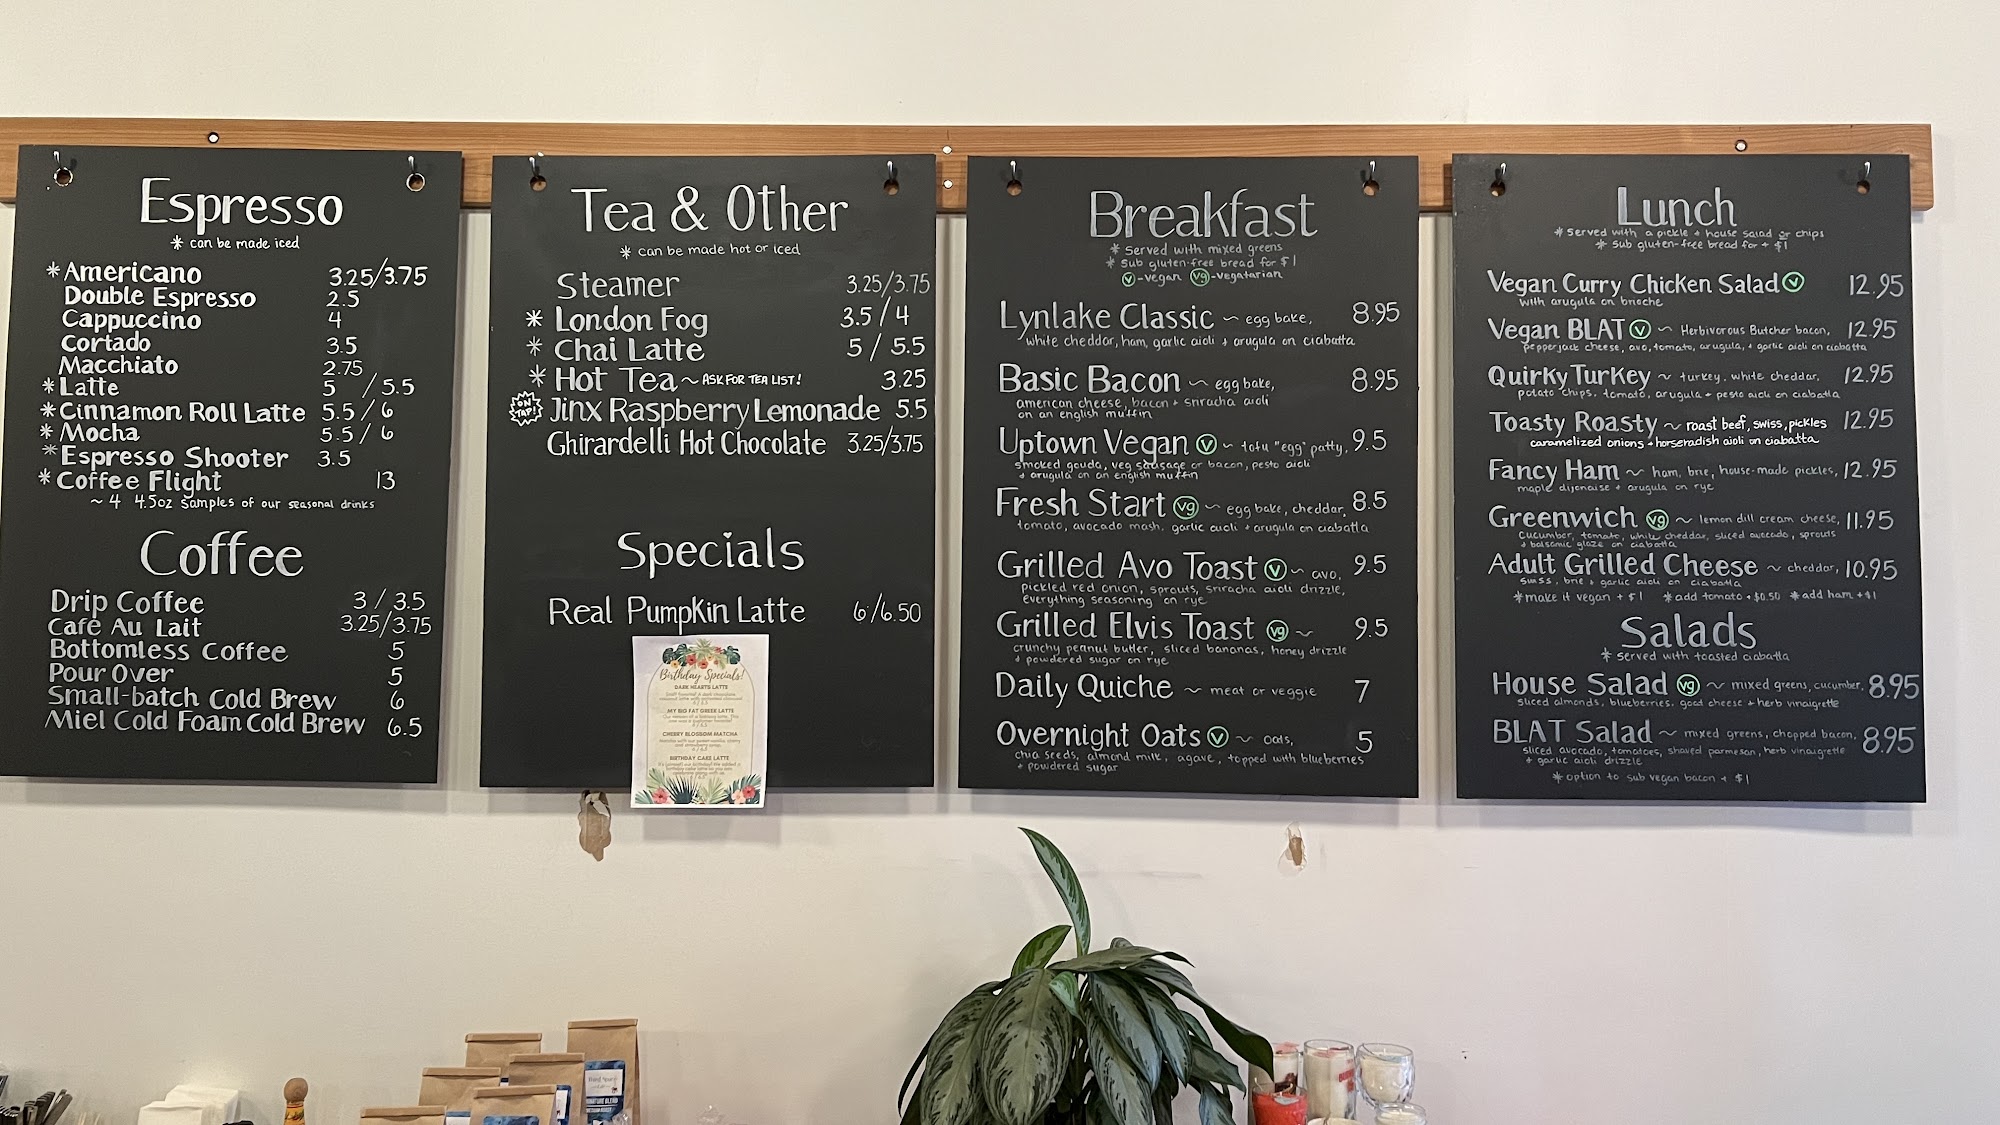 Espresso
* can be made iced
* Americano 3.25/3.75
Double Espresso 2.5
Cappuccino 4
Cortado 3.5
Macchiato 2.75
* Latte 5 / 5.5
* Cinnamon Roll Latte 5.5 / 6
* Mocha 5.5 / 6
* Espresso Shooter 3.5
* Coffee Flight 13
~ 4 4.5oz samples of our seasonal drinks
Coffee
Drip Coffee 3 / 3.5
Cafe Au Lait 3.25/3.75
Bottomless Coffee 5
Pour Over 5
Small-batch Cold Brew 6
Miel Cold Foam Cold Brew 6.5
Tea & Other
* can be made hot or iced
Steamer 3.25/3.75
* London Fog 3.5 / 4
* Chai Latte 5 / 5.5
* Hot Tea ~ ASK FOR TEA LIST! 3.25
ON TAP! Jinx Raspberry Lemonade 5.5
Ghirardelli Hot Chocolate 3.25/3.75
Specials
Real Pumpkin Latte 6/6.50
Birthday Specials!
DARK HEARTS LATTE
MY BIG FAT GREEK LATTE
CHERRY BLOSSOM MATCHA
BIRTHDAY CAKE LATTE
Breakfast
* Served with mixed greens
* Sub gluten-free bread for $1
V-vegan vg-vegatarian
Lynlake Classic ~ egg bake, 8.95
white cheddar, ham, garlic aioli + arugula on ciabatta
Basic Bacon ~ egg bake, 8.95
american cheese, bacon + sriracha aioli
on an english muffin
Uptown Vegan V ~ tofu "egg" patty, 9.5
smoked gouda, veg sausage or bacon, pesto aioli
+ arugula on an english muffin
Fresh Start vg ~ egg bake, cheddar, 8.5
tomato, avocado mash, garlic aioli + arugula on ciabatta
Grilled Avo Toast V ~ avo, 9.5
pickled red onion, sprouts, sriracha aioli drizzle,
everything seasoning on rye
Grilled Elvis Toast vg ~ 9.5
crunchy peanut butter, sliced bananas, honey drizzle
+ powdered sugar on rye
Daily Quiche ~ meat or veggie 7
Overnight Oats V ~ oats, 5
chia seeds, almond milk, agave, topped with blueberries
+ powdered sugar
Lunch
* Served with a pickle + house salad or chips
* Sub gluten-free bread for + $1
Vegan Curry Chicken Salad V 12.95
with arugula on brioche
Vegan BLAT V ~ Herbivorous Butcher bacon, 12.95
pepperjack cheese, avo, tomato, arugula, + garlic aioli on ciabatta
Quirky Turkey ~ turkey, white cheddar, 12.95
potato chips, tomato, arugula + pesto aioli on ciabatta
Toasty Roasty ~ roast beef, swiss, pickles 12.95
caramelized onions + horseradish aioli on ciabatta
Fancy Ham ~ ham, brie, house-made pickles, 12.95
maple dijonaise + arugula on rye
Greenwich vg ~ lemon dill cream cheese, 11.95
cucumber, tomato, white cheddar, sliced avocado, sprouts
+ balsamic glaze on ciabatta
Adult Grilled Cheese ~ cheddar, 10.95
swiss, brie + garlic aioli on ciabatta
* make it vegan + $1 * add tomato + $0.50 * add ham + $1
Salads
* Served with toasted ciabatta
House Salad vg ~ mixed greens, cucumber, 8.95
sliced almonds, blueberries, goat cheese + herb vinaigrette
BLAT Salad ~ mixed greens, chopped bacon, 8.95
sliced avocado, tomatoes, shaved parmesan, herb vinaigrette
+ garlic aioli drizzle
* option to sub vegan bacon + $1